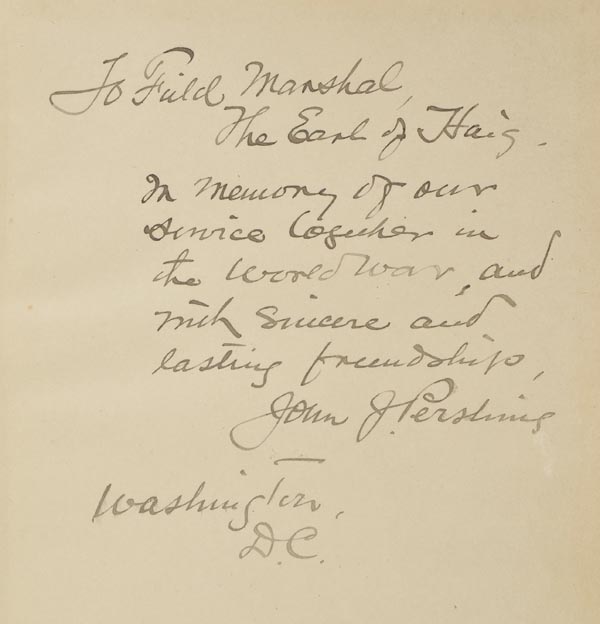 To Field Marshal,
The Earl of Haig.
In memory of our
service together in
the World War, and
with sincere and
lasting friendship,
John J. Pershing
Washington,
D.C.